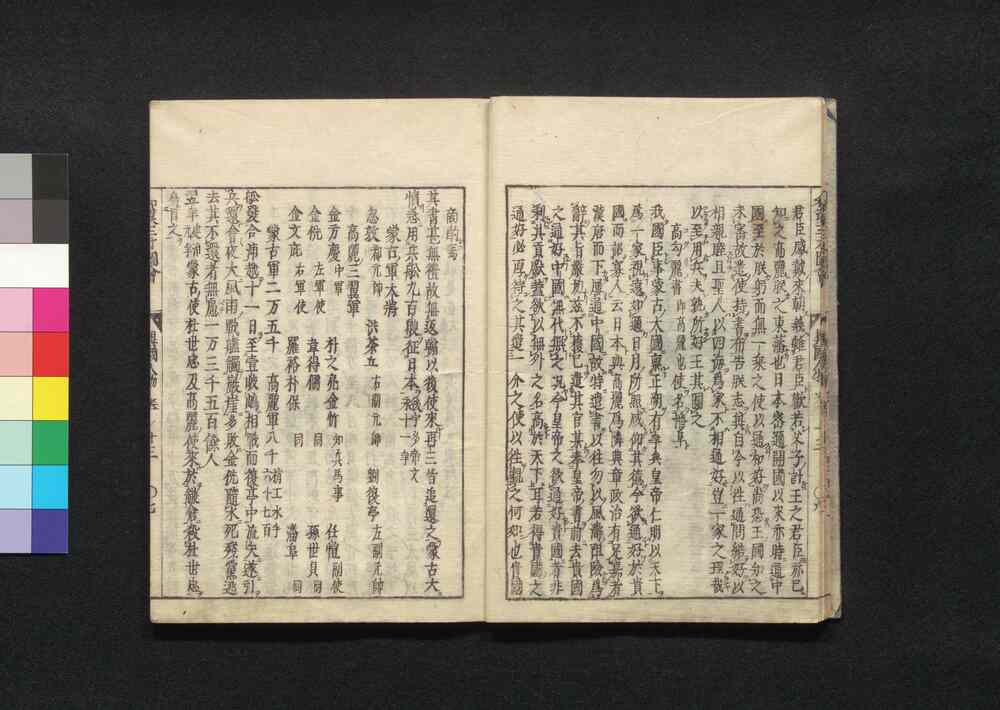 君臣感戴來朝義雖君臣歡若父子計王之君臣亦已
知之高麗朕之東藩也日本密邇開國以來亦時通中
國至於朕躬而無一乘之使以通和好尚恐王國知之
未審故遣使持書布告朕志冀自今以往通問結好以
相親睦且聖人以四海爲家不相通好豈一家之理哉
以至用兵夫孰所好王其圖之
高勾麗書 卽高麗也使名潘阜
我國臣事蒙古大國稟正朔有年矣皇帝仁明以天下
爲一家視遠如邇日月所照咸仰其德今欲通好於貴
國而詔寡人云日本與高麗爲隣典章政治有足嘉者
漢唐而下屢通中國故特遣書以往勿以風濤阻險爲
辭其旨嚴切茲不獲已遣其官某奉皇帝書前去貴國
之通好中國無代無之況今皇帝之欲通好貴國者非
利其貢獻蓋欲以無外之名高於天下耳若得貴國之
通好必厚待之其遣一介之使以往觀之何如也貴國
商酌焉
其書甚無禮故無返翰以後使來再三皆追還之蒙古大
憤怒用兵船九百艘征日本
蒙古軍大將
忽敦 都元帥 洪茶丘 右副元帥 劉復亨 左副元帥
高麗三翼軍
金方慶 中軍 朴之亮 金忻 知兵馬事 任愷 副使
金侁 左軍使 韋得儒 同 孫世貞 同
金文庇 右軍使 羅裕 朴保 同 潘阜 同
蒙古軍二万五千 高麗軍八千 梢工水手六千七百
船發合浦越十一日至壹岐嶋相戰而復亨中流矢遂引
兵還會夜大風雨戰艦觸巖崖多敗金侁墮水死殘黨逃
去其不還者無慮一万三千五百餘人
翌年使杜世忠及高麗使來於鎌倉殺杜世忠